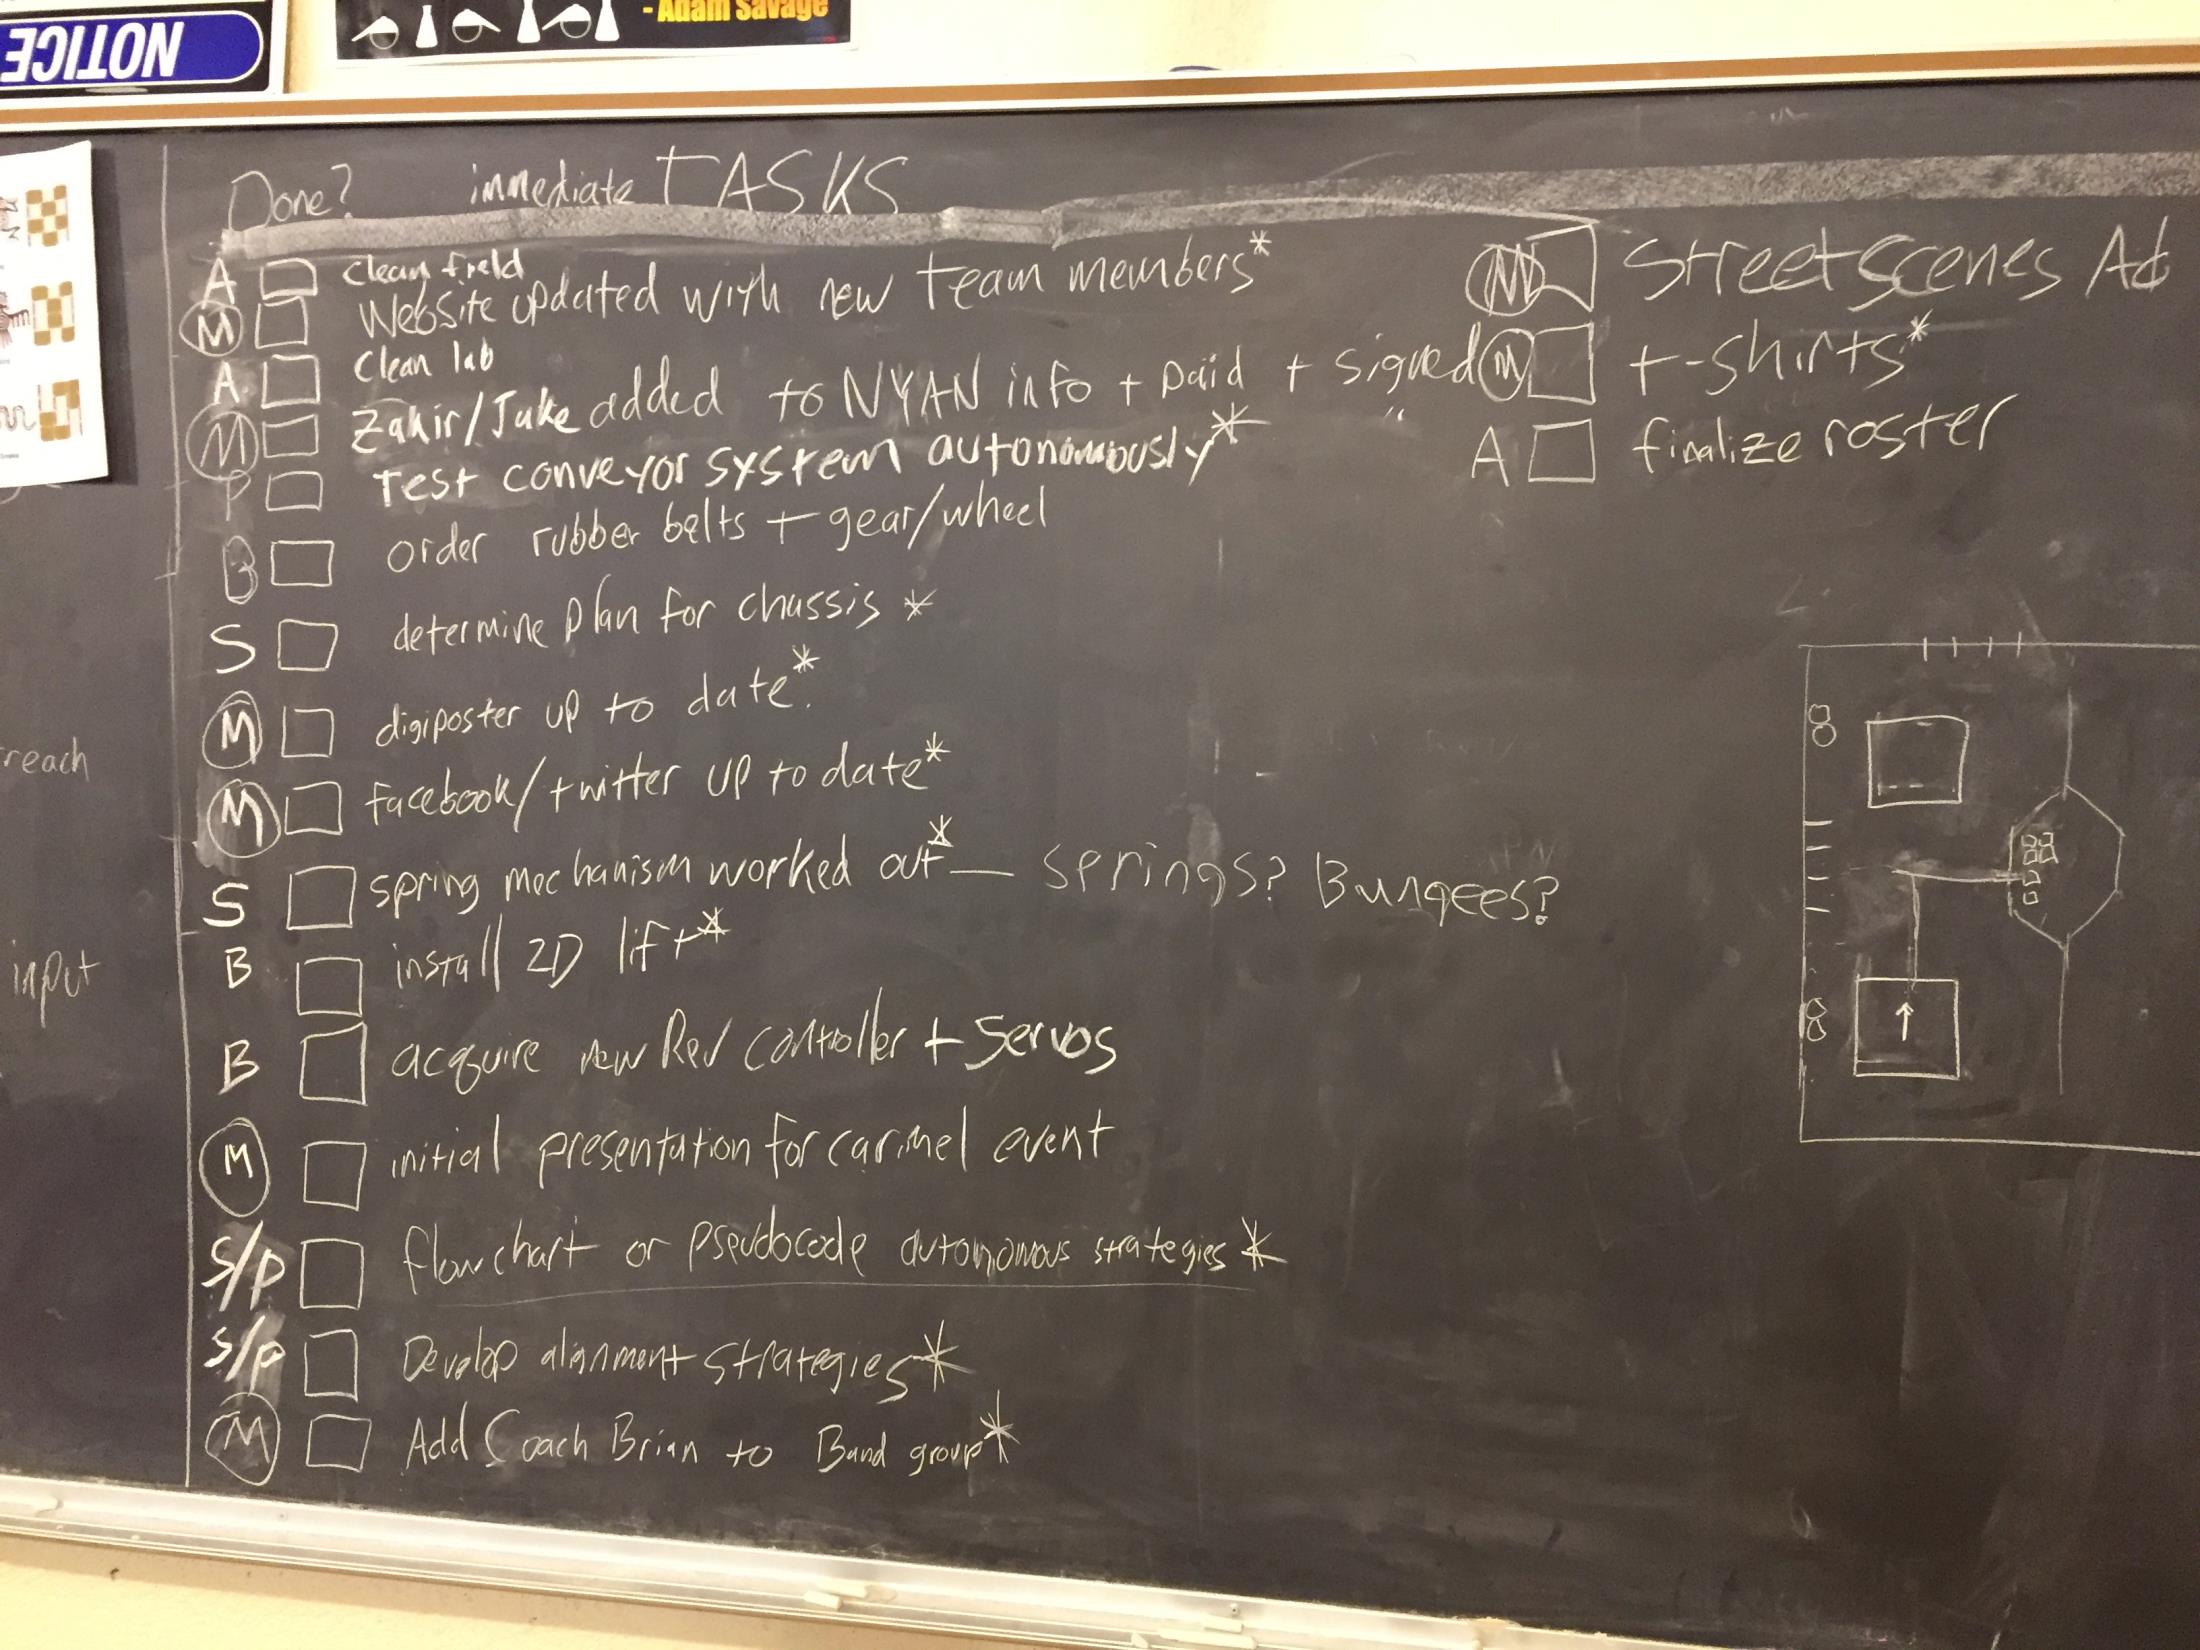 NOTICE
- Adam Savage
Done? immediate TASKS
A clean field
M Website updated with new team members*
A clean lab
M Zakir/Jake added to NYAN info + paid + signed
P Test conveyor system autonomously*
B order rubber belts + gear/wheel
S determine plan for chassis *
M digiposter up to date*.
M facebook/twitter up to date*
S spring mechanism worked out* — springs? Bungees?
B install 2D lift*
B acquire new Rev controller + Servos
M initial presentation for carmel event
S/P flowchart or pseudocode autonomous strategies *
S/P Develop alignment strategies*
M Add Coach Brian to Band group*
M Streetscenes Ad
M t-shirts*
A finalize roster
reach
input